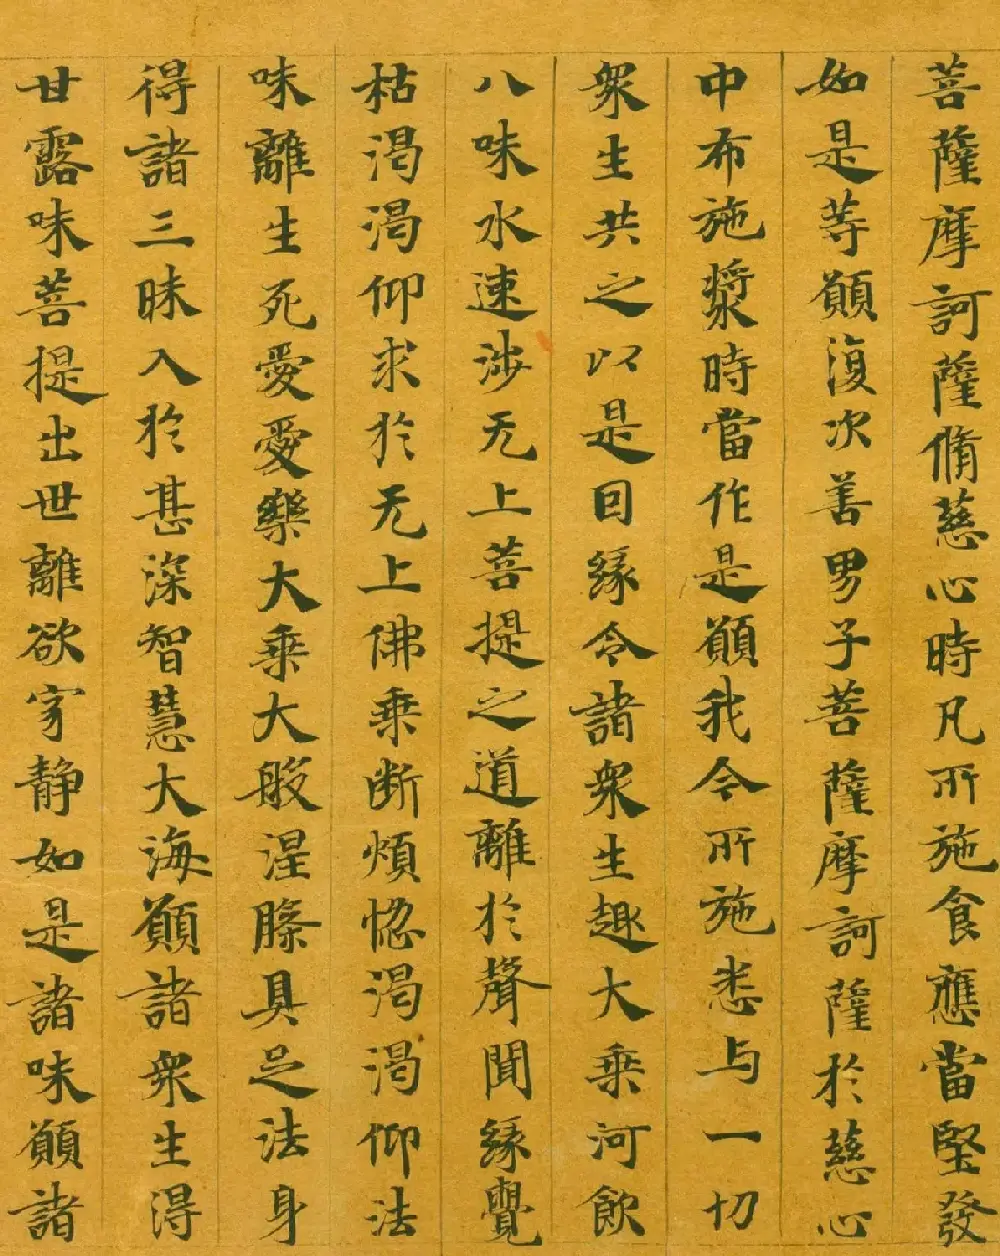 菩薩摩訶薩脩慈心時凡所施食應當堅發
如是等願復次善男子菩薩摩訶薩於慈心
中布施漿時當作是願我今所施悉与一切
衆生共之以是因緣令諸衆生趣大乗河飲
八味水速涉无上菩提之道離於聲聞緣覺
枯渴渴仰求於无上佛乗断煩惱渴渴仰法
味離生死愛愛樂大乗大般涅槃具足法身
得諸三昧入於甚深智慧大海願諸衆生得
甘露味菩提出世離欲家静如是諸味願諸